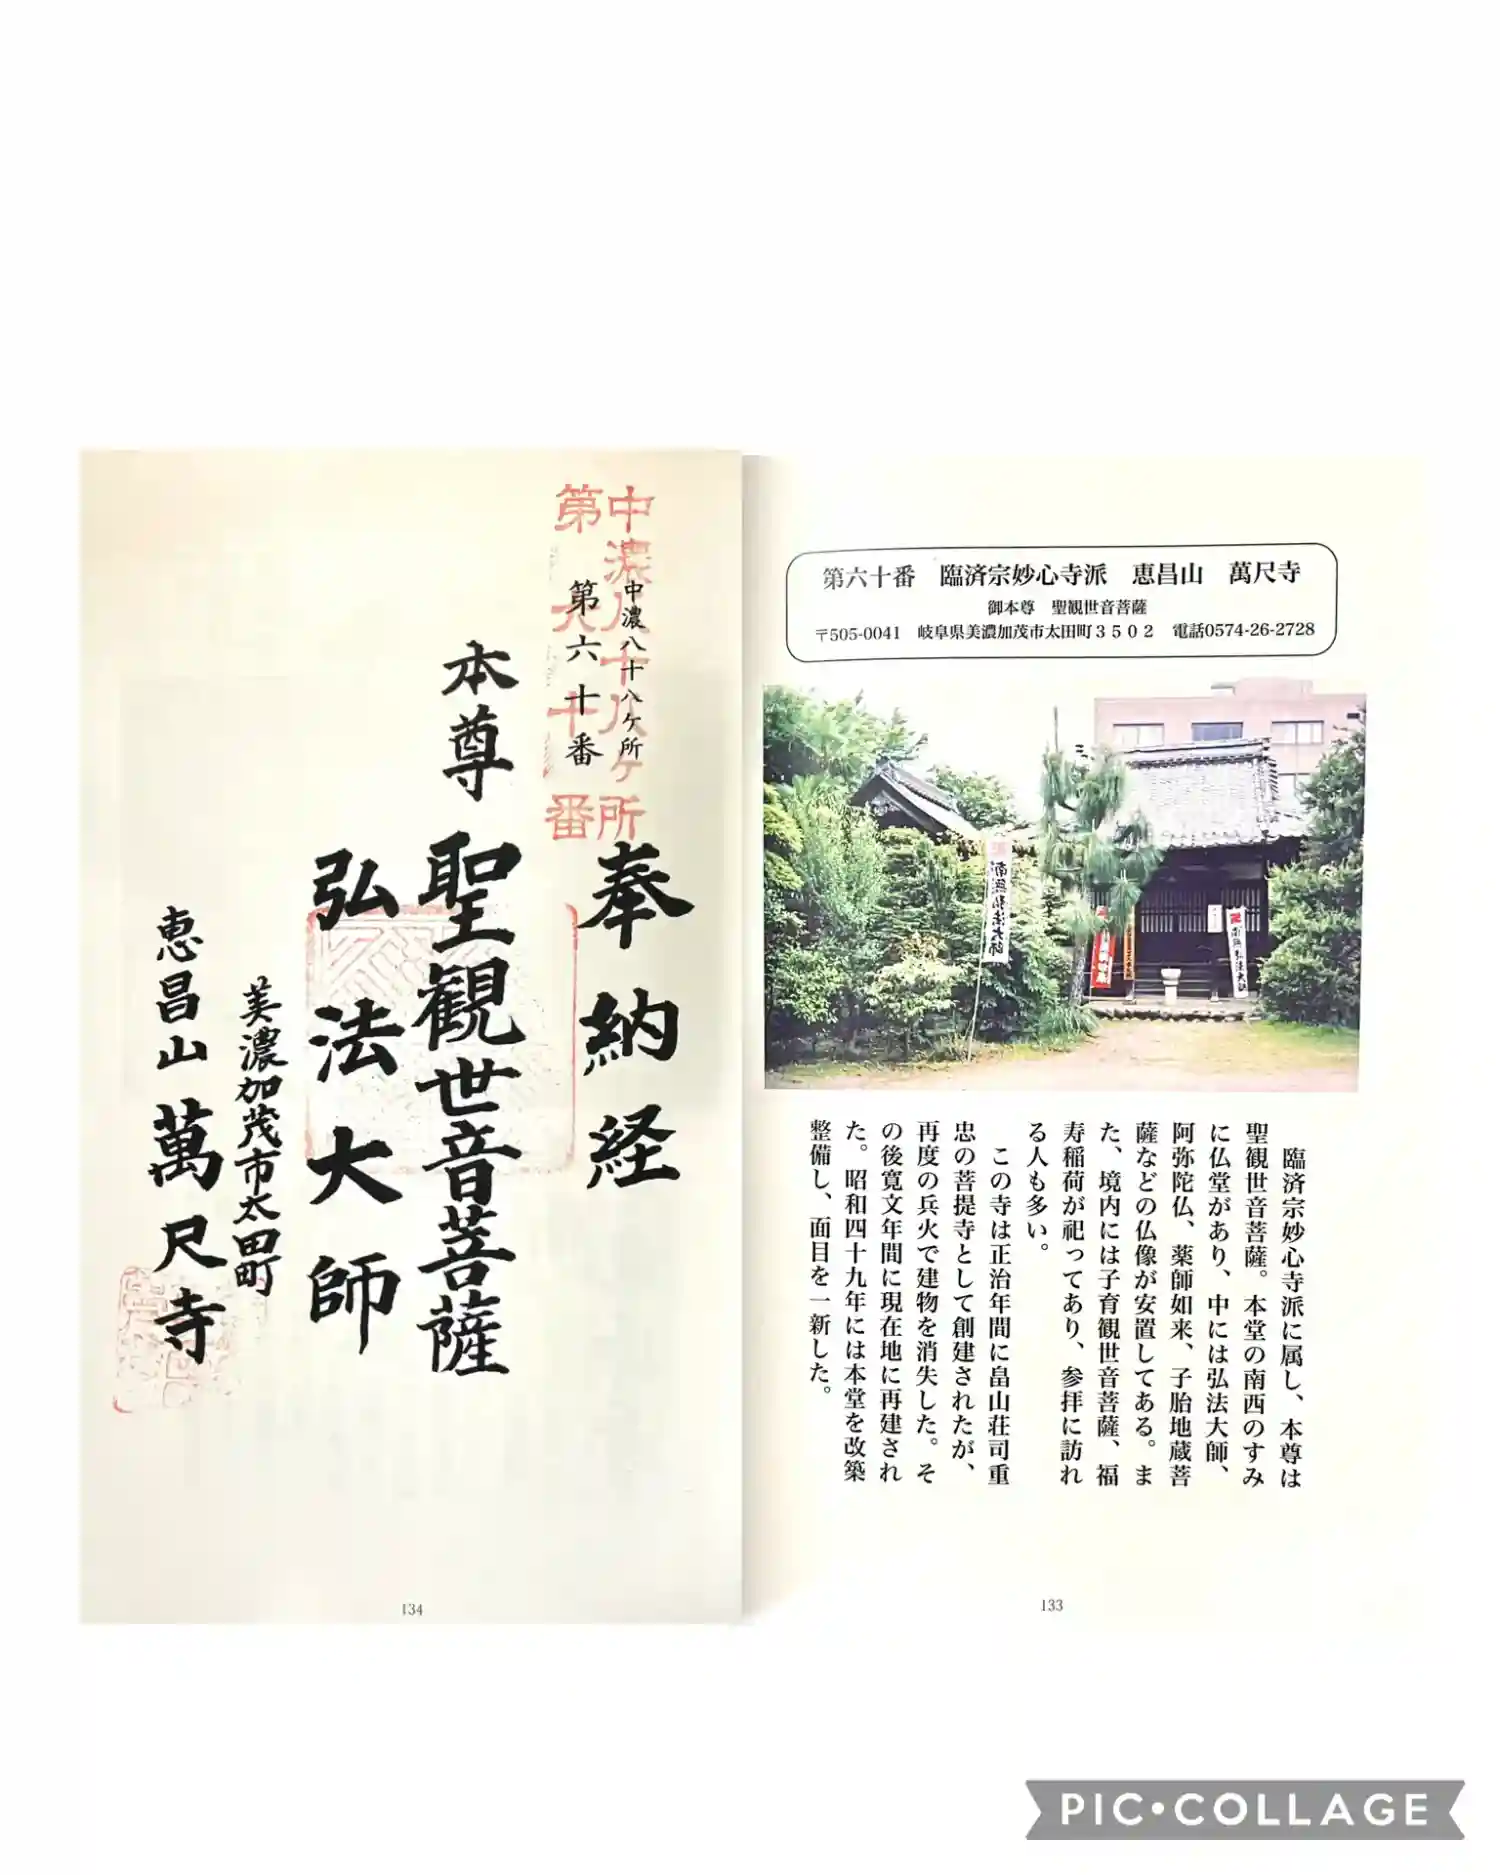 第六十番　臨済宗妙心寺派　恵昌山　萬尺寺
御本尊　聖観世音菩薩
〒505-0041　岐阜県美濃加茂市太田町３５０２　電話0574-26-2728
南無弘法大師
南無弘法大師
臨済宗妙心寺派に属し、本尊は
聖観世音菩薩。本堂の南西のすみ
に仏堂があり、中には弘法大師、
阿弥陀仏、薬師如来、子胎地蔵菩
薩などの仏像が安置してある。ま
た、境内には子育観世音菩薩、福
寿稲荷が祀ってあり、参拝に訪れ
る人も多い。
この寺は正治年間に畠山荘司重
忠の菩提寺として創建されたが、
再度の兵火で建物を消失した。そ
の後寛文年間に現在地に再建され
た。昭和四十九年には本堂を改築
整備し、面目を一新した。
133
中濃八十八ヶ所
第六十番
中濃八十八ヶ所
第六十番
奉納経
本尊聖観世音菩薩
弘法大師
美濃加茂市太田町
恵昌山萬尺寺
134
PIC•COLLAGE